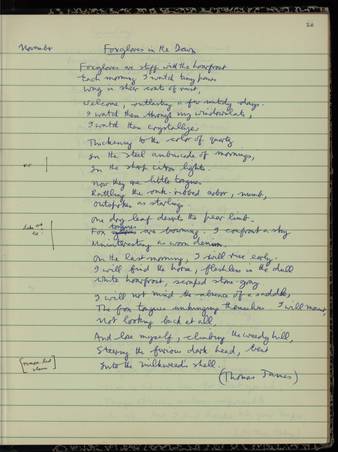 26
November Foxgloves in the Dawn
Foxgloves are stiff with the hoarfrost
Each morning I watch tiny paws
in sheer coats of
Welcome, outlasting a few days.
I watch them through my
I watch them crystallize
Thickening to the color of quartz
In the steel ambuscade of mornings,
In the sharp citron lights.
Now they are little tongues
Rattling the oak-ribbed arbor, numb,
Outspoken as starlings.
One dry leaf the pear limb.
Fox tongues are browsing. I confront a sky
Uninteresting as worn denim.
On the last morning, I will rise early.
I will find the horse, fleshless in the dull
White hoarfrost, scraped stone-gray
I will not mind the absence of a saddle,
The fox tongues unhinging themselves. I will mount,
Not looking back at all,
And lose myself, climbing the weedy hill,
Steering the furious dark head, bent
Into the milkweed's shell.
(Thomas James)